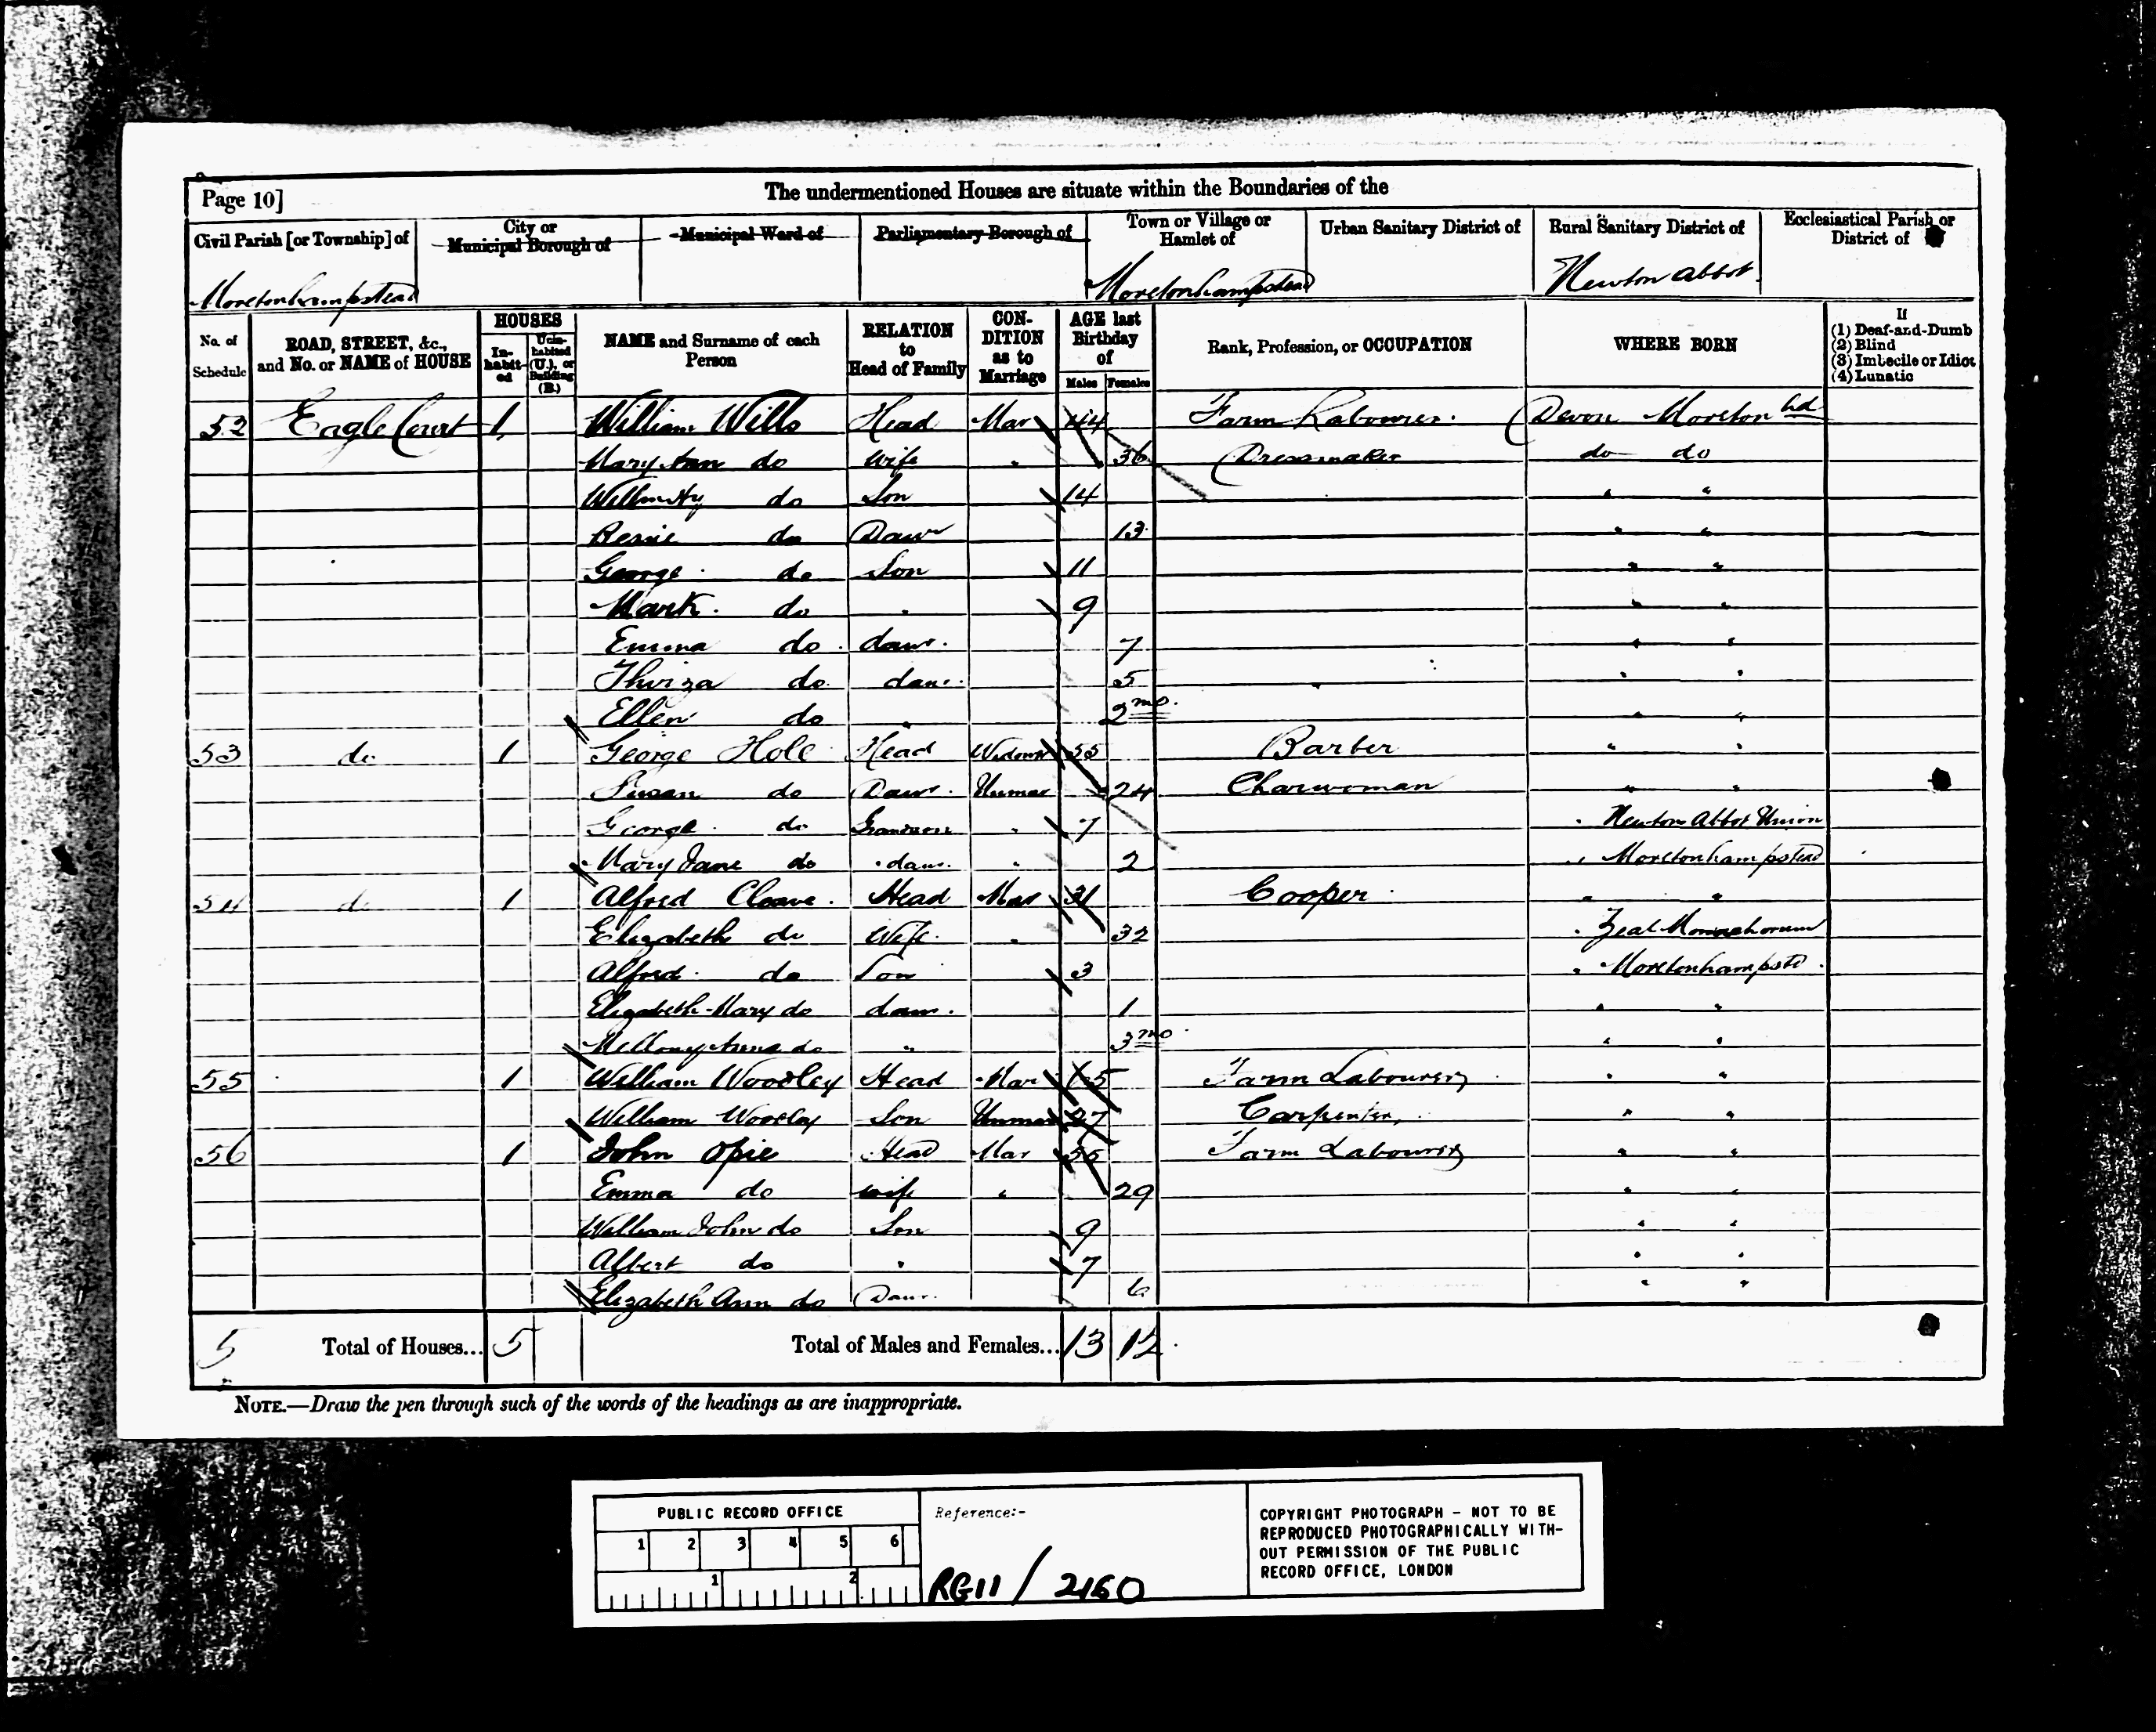 Page 10]
The undermentioned Houses are situate within the Boundaries of the
Civil Parish [or Township] of
City or Municipal Borough of
Municipal Ward of
Parliamentary Borough of
Town or Village or Hamlet of
Urban Sanitary District of
Rural Sanitary District of
Ecclesiastical Parish or District of
Moretonhampstead Moretonhampstead Newton Abbot
No. of Schedule
ROAD, STREET, &c., and No. or NAME of HOUSE
HOUSES
In-habit-ed
Unin-habited (U.), or Building (B.)
NAME and Surname of each Person
RELATION to Head of Family
CON-DITION as to Marriage
AGE last Birthday of
Males Females
Rank, Profession, or OCCUPATION
WHERE BORN
If
(1) Deaf-and-Dumb
(2) Blind
(3) Imbecile or Idiot
(4) Lunatic
52 Eagle Court 1 William Wills Head Mar 44 Farm Labourer. Devon Moreton hd
Mary Ann do Wife " 36 Dressmaker do do
do Son 14 " "
Bessie do Daur 13 " "
George do Son 11 " "
Mark. do " 9 " "
Emma do daur. 7 " "
Thirza do daur. 5 " " "
Ellen do " 2 mo. " "
53 do 1 George Hole Head Widowr 55 Barber " "
Susan do Daur. Unmar 24 Charwoman " "
George do Grandson " 7 " Newton Abbot Union
Mary Jane do " daur. " 2 " Moretonhampstead
54 do 1 Alfred Cleave. Head Mar 31 Cooper " "
Elizabeth do Wife " 32 " Zeal Monachorum
Alfred do Son 3 " Moretonhampstd.
Elizabeth Mary do daur. 1 " "
Anna do " 3 mo " "
55 1 William Woodley Head Mar 65 Farm Labourer " "
William Woodley Son Unmar 27 Carpenter, " "
56 1 John Opie Head Mar Farm Labourer " "
Emma do wife " 29 " "
William John do Son 9 " "
Albert do " 7 " "
Elizabeth Ann do Daur. 6 " "
5 Total of Houses... 5 Total of Males and Females... 13 12
NOTE.—Draw the pen through such of the words of the headings as are inappropriate.
PUBLIC RECORD OFFICE
1 2 3 4 5 6
1 2
Reference:-
RG11 / 2160
COPYRIGHT PHOTOGRAPH - NOT TO BE
REPRODUCED PHOTOGRAPHICALLY WITH-
OUT PERMISSION OF THE PUBLIC
RECORD OFFICE, LONDON